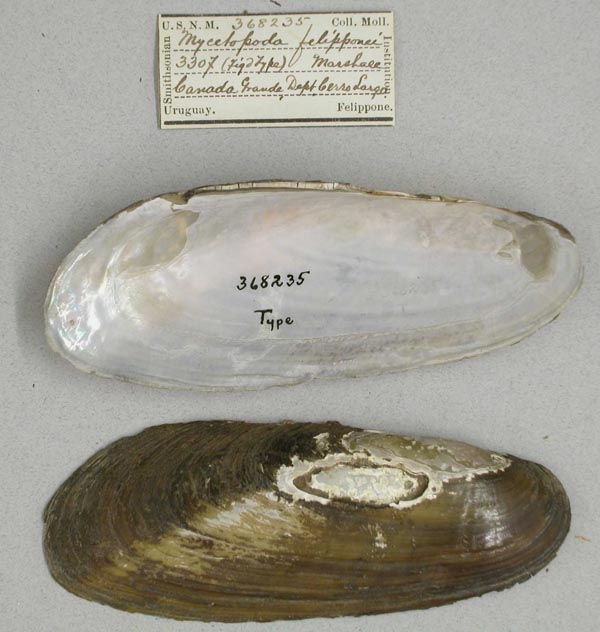 U.S.N.M. 368235 Coll. Moll.
Smithsonian
Mycetopoda felipponei
3307 (Fig'd Type) Marshall
Canada Grande, Dept. Cerro Largo
Institution.
Uruguay. Felippone.
368235
Type